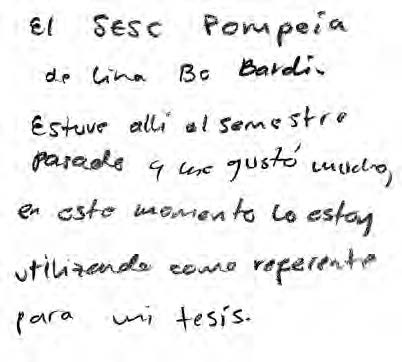 El SESC Pompeia
de Lina Bo Bardi.
Estuve allí el semestre
pasado y me gustó mucho,
en este momento lo estoy
utilizando como referente
para mi tesis.